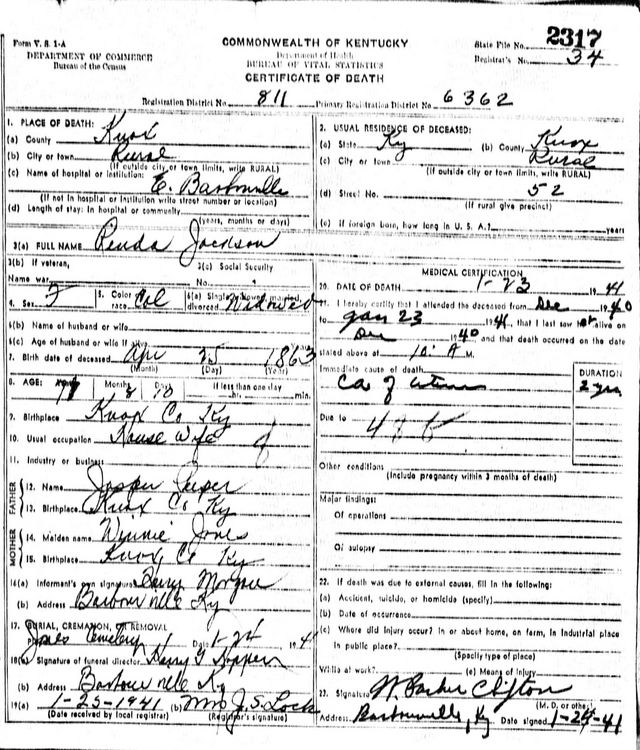 Form V. S. 1-A
DEPARTMENT OF COMMERCE
Bureau of the Census
COMMONWEALTH OF KENTUCKY
Department of Health
BUREAU OF VITAL STATISTICS
CERTIFICATE OF DEATH
State File No. 2317
Registrar's No. 34
Registration District No. 811 Primary Registration District No. 6362
1. PLACE OF DEATH:
(a) County Knox
(b) City or town Rural
(If outside city or town limits, write RURAL)
(c) Name of hospital or institution:
E. Barbourville
(If not in hospital or institution write street number or location)
(d) Length of stay: In hospital or community
(years, months or days)
2. USUAL RESIDENCE OF DECEASED:
(a) State Ky (b) County Knox
(c) City or town Rural
(If outside city or town limits, write RURAL)
(d) Street No. 52
(If rural give precinct)
(e) If foreign born, how long in U. S. A.? years
3(a) FULL NAME Jackson
3(b) If veteran,
Name war
3(c) Social Security
No.
4. Sex F 5. Color race Col 6(a) Single, widowed, married, divorced Widowed
6(b) Name of husband or wife
6(c) Age of husband or wife if alive
7. Birth date of deceased Apr 25 1863
(Month) (Day) (Year)
8. AGE: 77 Months 8 Days If less than one day hr. min.
9. Birthplace Knox Co Ky
10. Usual occupation House Wife
11. Industry or business
FATHER
12. Name
13. Birthplace Knox Co Ky
MOTHER
14. Maiden name Winnie Jones
15. Birthplace Knox Co Ky
16(a) Informant's own signature
(b) Address Barbourville Ky
17. BURIAL, CREMATION, OR REMOVAL
Jones Cemetery Date 1-24 1941
18(a) Signature of funeral director Harry
(b) Address Barbourville Ky
19(a) 1-25-1941 (b) Mrs J. S. Lock
(Date received by local registrar) (Registrar's signature)
MEDICAL CERTIFICATION
20. DATE OF DEATH 1-23 1941
21. I hereby certify that I attended the deceased from Dec 1940
to Jan 23 1941, that I last saw her alive on
Dec 1940 and that death occurred on the date
stated above at 10: A M.
Immediate cause of death DURATION
Ca of uterus 2 yrs
Due to
Other conditions
(Include pregnancy within 3 months of death)
Major findings:
Of operations
Of autopsy
22. If death was due to external causes, fill in the following:
(a) Accident, suicide, or homicide (specify)
(b) Date of occurrence
(c) Where did injury occur? In or about home, on farm, in industrial place
in public place?
(Specify type of place)
While at work? (e) Means of injury
23. Signature Parker Clifton
(M. D. or other)
Address Barbourville, Ky Date signed 1-24-41